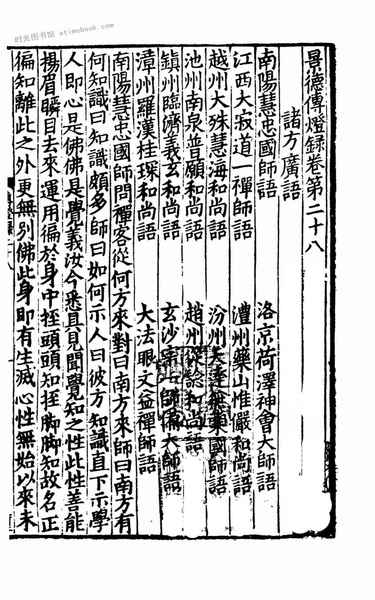 时光图书馆 etimebook.com
景德傳燈録卷第二十八
諸方廣語
南陽慧忠國師語 洛京荷澤神會大師語
江西大寂道一禪師語 澧州藥山惟儼和尚語
越州大殊慧海和尚語 汾州大達無業國師語
池州南泉普願和尚語 趙州從諗和尚語
鎮州臨濟義玄和尚語 玄沙宗一師備大師語
漳州羅漢桂琛和尚語 大法眼文益禪師語
南陽慧忠國師問禪客從何方來對曰南方來師曰南方有
何知識曰知識頗多師曰如何示人曰彼方知識直下示學
人即心是佛佛是覺義汝今悉具見聞覺知之性此性善能
揚眉瞬目去來運用徧於身中挃頭頭知挃脚脚知故名正
徧知離此之外更無別佛此身即有生滅心性無始以來未